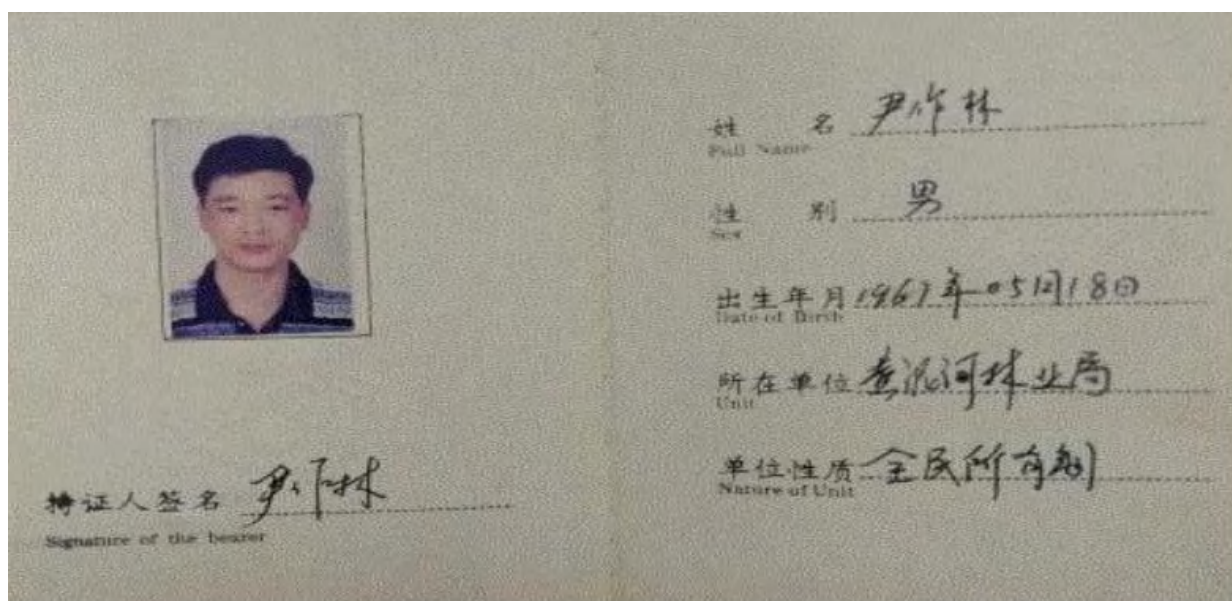 持证人签名 尹作林
Signature of the bearer
姓 名 尹作林
Full Name
性 别 男
Sex
出生年月 1967年05月18日
Date of Birth
所在单位 黄泥河林业局
Unit
单位性质 全民所有制
Nature of Unit